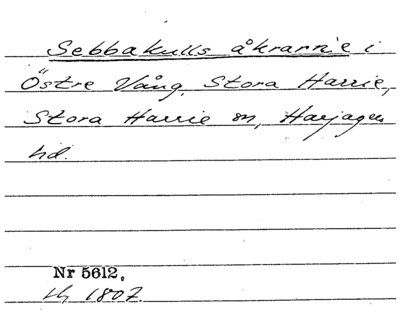 Sebbakulls åkrarne i
Östre Vång, Stora Harrie,
Stora Harrie sn, Harjagers
hd.
Nr 5612.
1807.